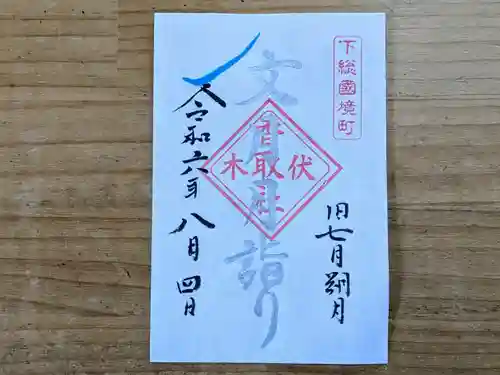 下総國境町
旧七月朔月
文月月詣り
伏木
香取社
令和六年八月四日